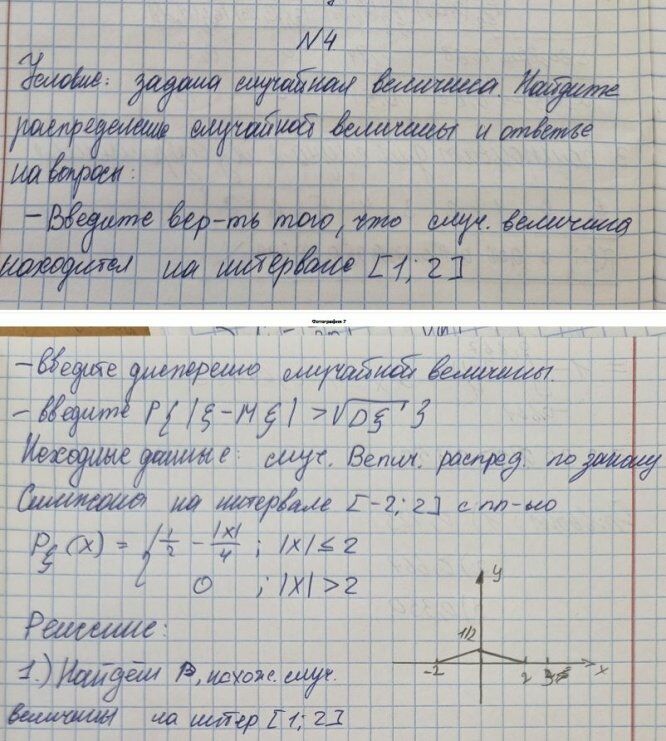 N4
Условие: задана случайная величина. Найдите
распределение случайной величины и ответье
на вопросы:
- Введите вер-ть того, что случ. величина
находится на интервале [1; 2]
Фотография 7
- Введите дисперсию случайной величины.
- введите P{|ξ-Mξ| > √Dξ}
Исходные данные: случ. Велич. распред. по закону
Симпсона на интервале [-2; 2] с пл-ью
Pξ(x) = { 1/2 - |x|/4 ; |x| ≤ 2
0 ; |x| > 2
y
Решение:
1/2
-2 2 x
1.) Найдём P, нахожд. случ.
величины на интер [1; 2]